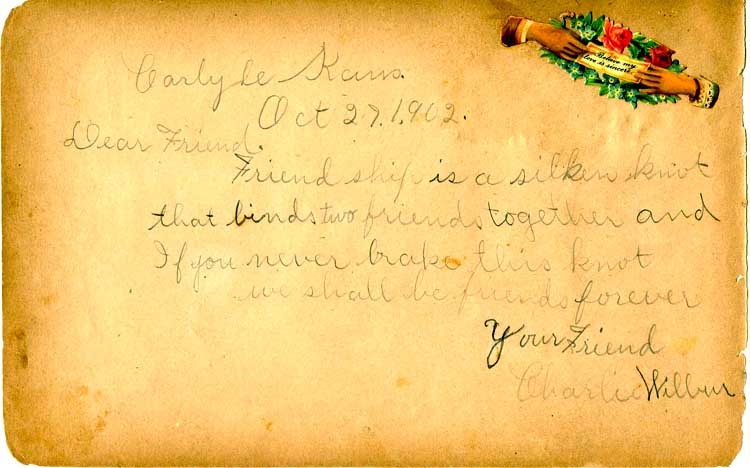 Believe my
love is sincere.
Carlyle Kans.
Oct 27. 1902.
Dear Friend.
Friend ship is a silken knot
that binds two friends together and
If you never brake this knot
we shall be friends forever
Your Friend
Charlie Wilbur